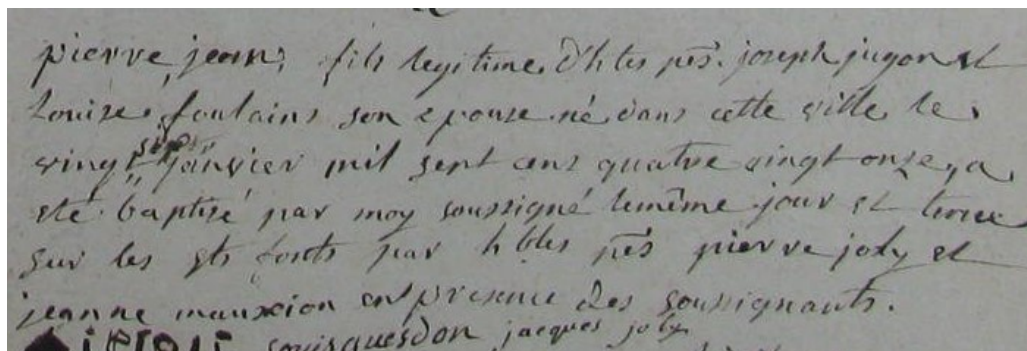 pierre jean, fils legitime d'h tes pes. joseph jugon et
Louise foulain son epouse né dans cette ville le
vingt sept janvier mil sept cens quatre vingt onze, a
eté baptisé par moy soussigné le même jour et tenu
sur les sts fonts par h bles pes pierre joly et
jeanne mauxion en presence des soussignants.
jacques joly